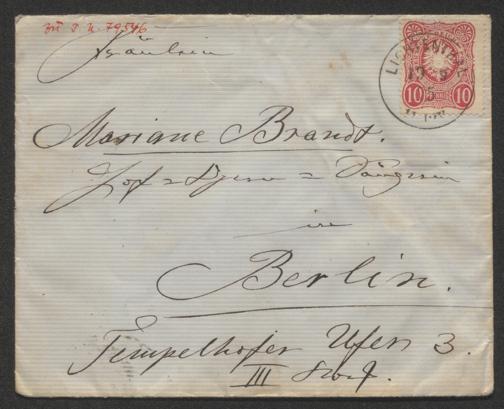 zu I. N. 79546
Fräulein
LICHTENTHAL
10 10
Mariane Brandt.
Hof-Opern-Sängerin
in
Berlin.
Tempelhofer Ufer 3.
III